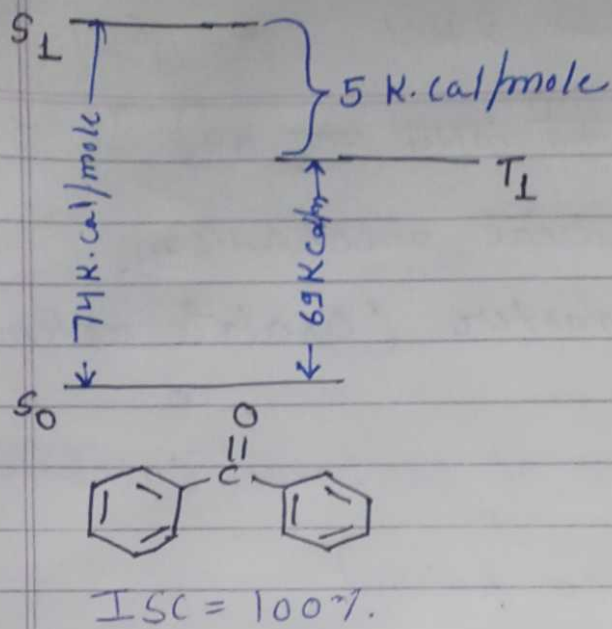 S1
5 K.cal/mole
T1
74 K.cal/mole
69 Kcal/m
S0
O
C
ISC = 100%.